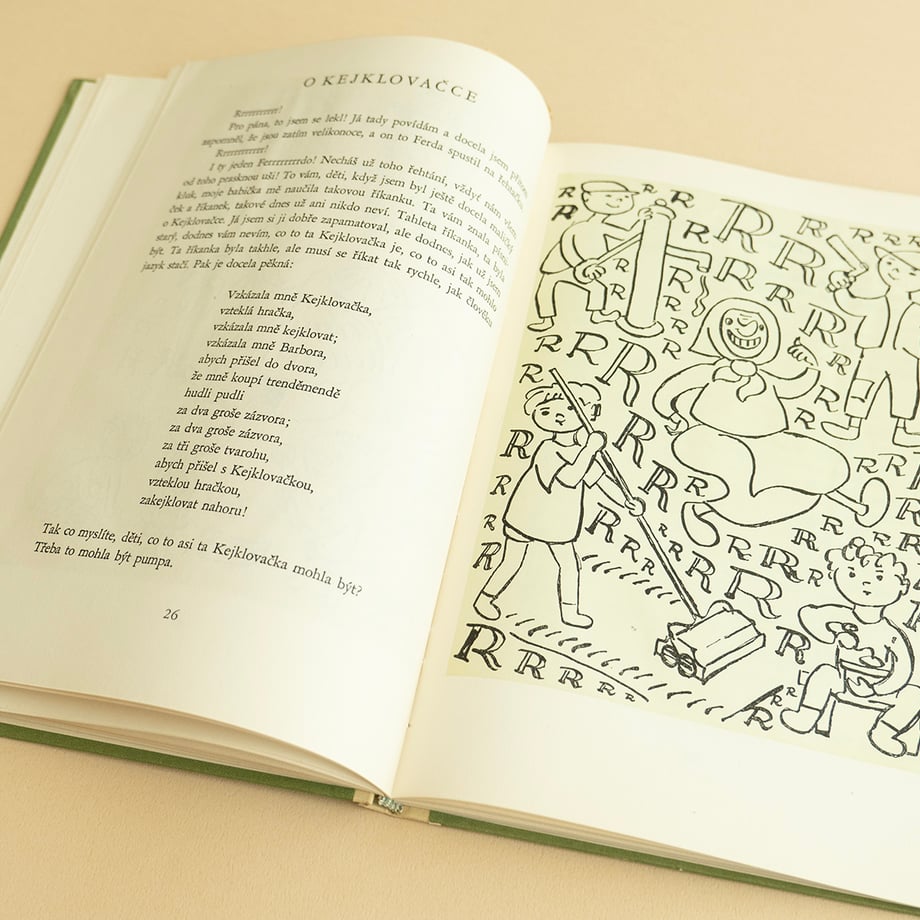 O KEJKLOVAČCE
Rrrrrrrrrr!
Pro pána, to jsem se lekl! Já tady povídám a docela jsem přitom
zapomněl, že jsou zatím velikonoce, a on to Ferda spustil na řehtačku.
Rrrrrrrrrrr!
I ty jeden Ferrrrrrrrdo! Necháš už toho řehtání, vždyť nám všem
od toho prasknou uši! To vám, děti, když jsem byl ještě docela maličký
kluk, moje babička mě naučila takovou říkanku. Ta vám znala písni-
ček a říkanek, takové dnes už ani nikdo neví. Tahleta říkanka, ta byla
o Kejklovačce. Já jsem si ji dobře zapamatoval, ale dodnes, jak už jsem
starý, dodnes vám nevím, co to ta Kejklovačka je, co to asi tak mohlo
být. Ta říkanka byla takhle, ale musí se říkat tak rychle, jak člověku
jazyk stačí. Pak je docela pěkná:
Vzkázala mně Kejklovačka,
vzteklá hračka,
vzkázala mně kejklovat;
vzkázala mně Barbora,
abych přišel do dvora,
že mně koupí trenděmendě
hudli pudli
za dva groše zázvora;
za dva groše zázvora,
za tři groše tvarohu,
abych přišel s Kejklovačkou,
vzteklou hračkou,
zakejklovat nahoru!
Tak co myslíte, děti, co to asi ta Kejklovačka mohla být?
Třeba to mohla být pumpa.
26
R R R R R R R R
R R R R R
R R R R R
R R R R
R R R R
R R R R R
R R R R R
R R R R R R